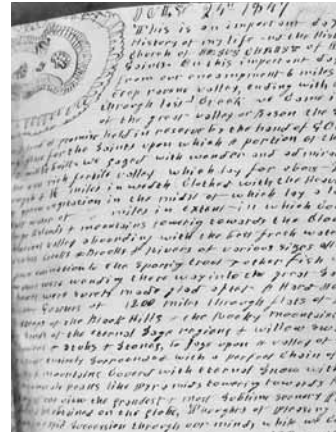 July 24th 1847
This is an important day
History of my life and the Hist
Church of JESUS CHRIST of
Saints. On this important day
from our encampment 6 miles
deep ravine valley, ending with
through last Creek. we came
of the great valley or Bason the
promise held in reserve by the hand of GOD
for the Saints upon which a portion of
we gazed with wonder and admir
rich fertile valley which lay for about
16 miles in width Clothed with the Heav
vegetation in the midst of which lay a
miles in extent in which
Islands & mountains towering towards the
valley abounding with the best fresh water
Creeks & Brooks & Rivers of various sizes all
to the Sporting trout & other fish
were wending there way into the great
were surely made glad after A Hard
Journey of 1200 miles through flats of
of the Black Hills & the Rocky mountains
of the eternal Sage regions & willow
& Stones, to gaze upon a valley of
Surrounded with a perfect Chain of
mountains Coverd with eternal Snow with
peaks like Pyramids towering towards
view the grandest & most Sublime Scenery
on the globe, Thoughts of Pleasing
Succession through our minds while we